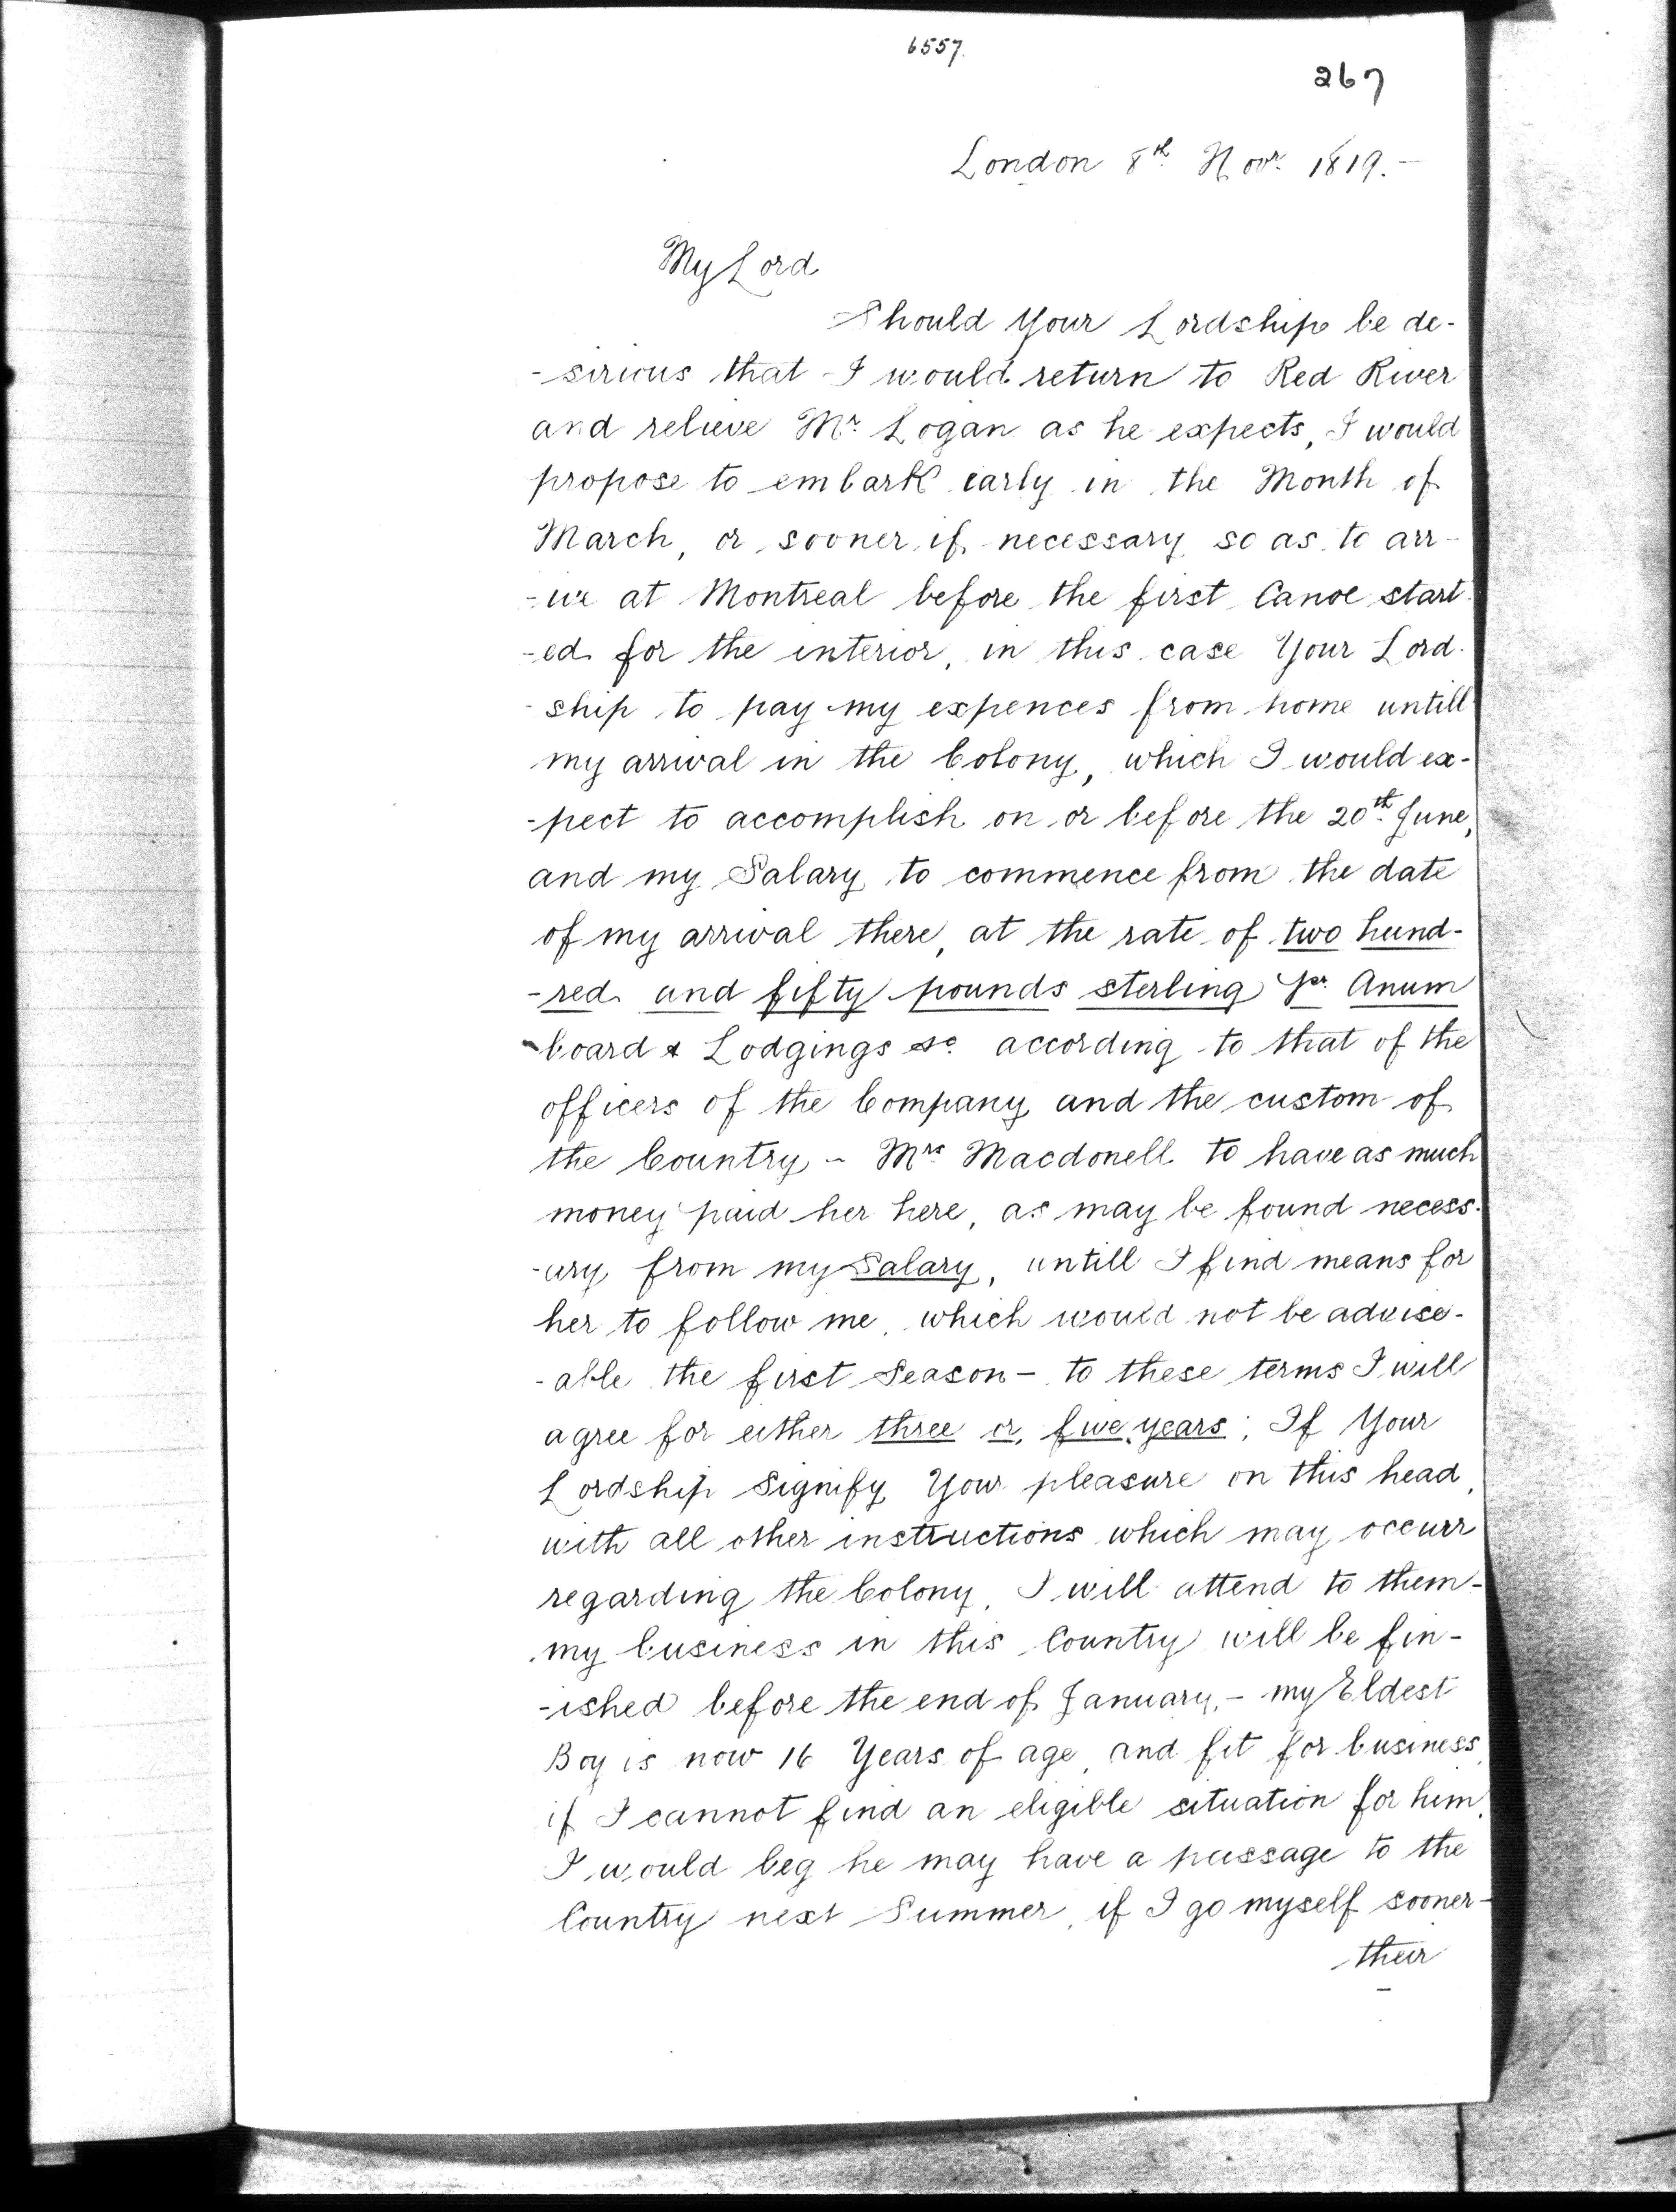 6557.
267
London 8th Novr. 1819.-
My Lord
Should Your Lordship be de-
-sirious that I would return to Red River
and relieve Mr. Logan as he expects, I would
propose to embark early in the Month of
March, or sooner if necessary so as to arr-
-ive at Montreal before the first Canoe start-
-ed for the interior, in this case Your Lord-
-ship to pay my expences from home untill
my arrival in the Colony, which I would ex-
-pect to accomplish on or before the 20th. June,
and my Salary to commence from the date
of my arrival there, at the rate of two hund-
-red and fifty pounds sterling pr. Anum
board & Lodgings &c. according to that of the
officers of the Company and the custom of
the Country - Mrs Macdonell to have as much
money paid her here, as may be found necess-
-ary from my Salary, untill I find means for
her to follow me, which would not be advise-
-able the first Season - to these terms I will
agree for either three or five years; If Your
Lordship signify Your pleasure on this head,
with all other instructions which may occurr
regarding the Colony, I will attend to them-
my business in this Country will be fin-
-ished before the end of January,- my Eldest
Boy is now 16 Years of age, and fit for business,
if I cannot find an eligible situation for him,
I would beg he may have a passage to the
Country next Summer, if I go myself sooner-
their